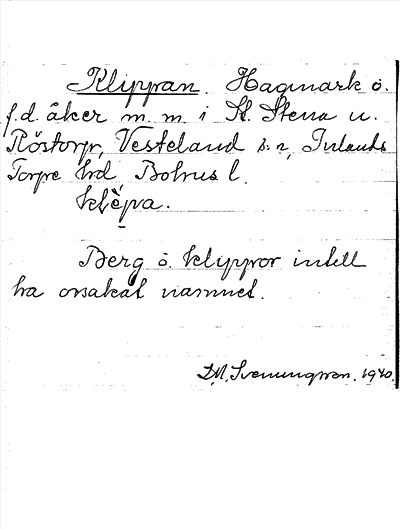 Klippan. Hagmark o.
f.d. åker m.m. i St. Stena u.
Röstorp, Vesteland s:n, Inlands
Torpe hd Bohus l.
klèpa.
Berg o. klippor intill
ha orsakat namnet.
D.M. Svenungsson. 1940.